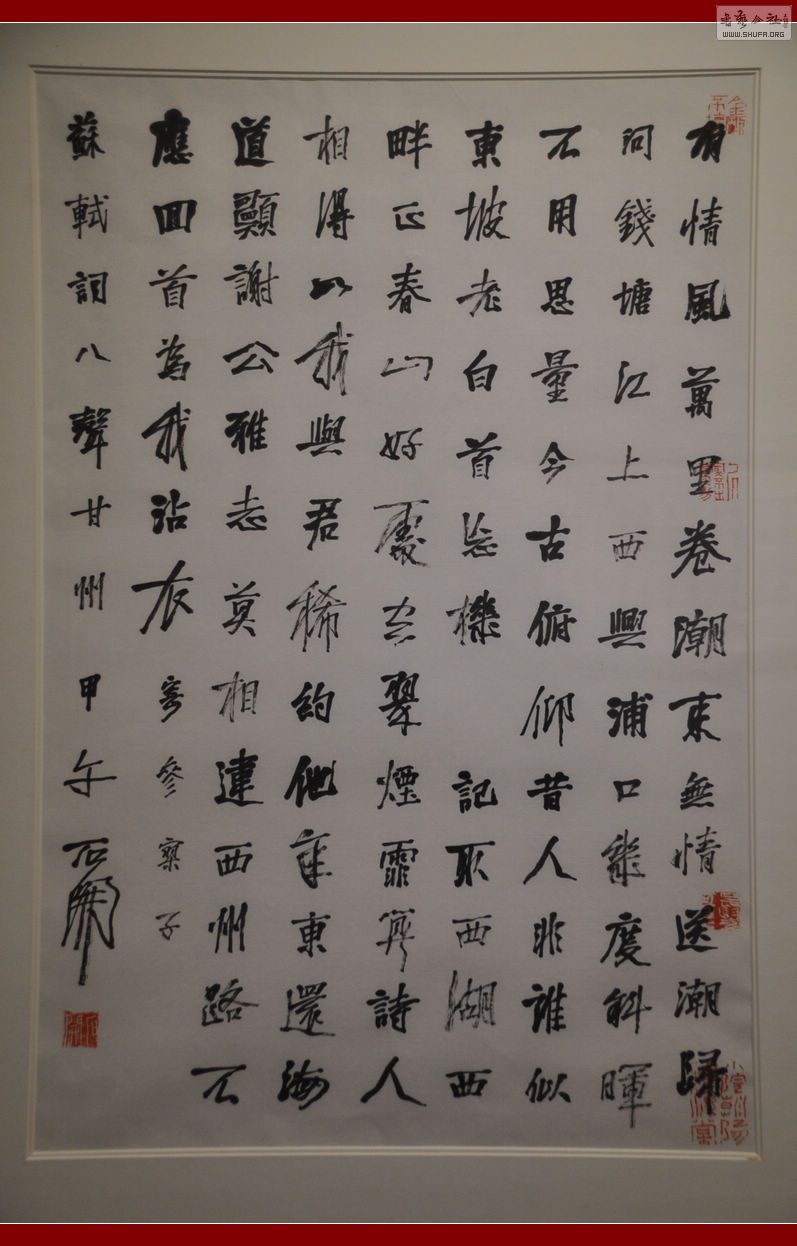 有情風萬里卷潮來無情送潮歸
問錢塘江上西興浦口幾度斜暉
不用思量今古俯仰昔人非誰似
東坡老白首忘機 記取西湖西
畔正春山好處空翠煙霏算詩人
相得以我與君稀約他年東還海
道願謝公雅志莫相違西州路不
應回首為我沾衣 寄參寥子
蘇軾詞八聲甘州 甲午 石開
書藝公社
WWW.SHUFA.ORG